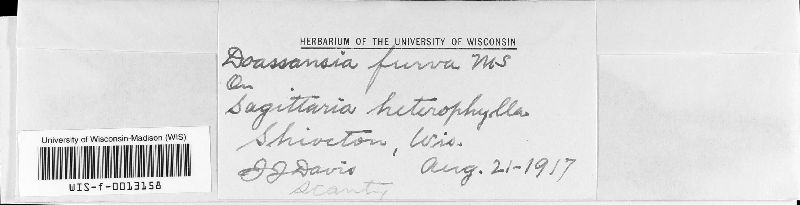 HERBARIUM OF THE UNIVERSITY OF WISCONSIN
Doassansia furva MS
On
Sagittaria heterophylla
Shiocton, Wis.
J J Davis Aug. 21-1917
Scanty
University of Wisconsin-Madison (WIS)
WIS-f-0013158